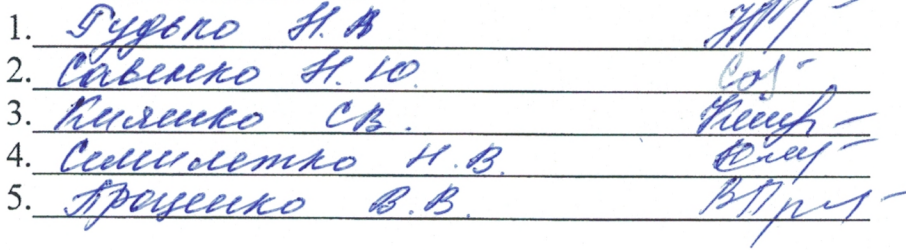 1. Гудько Н.В
2. Савенко Н.Ю.
3. Кияшко СВ.
4. Семилетко Н.В.
5. Проценко В.В.